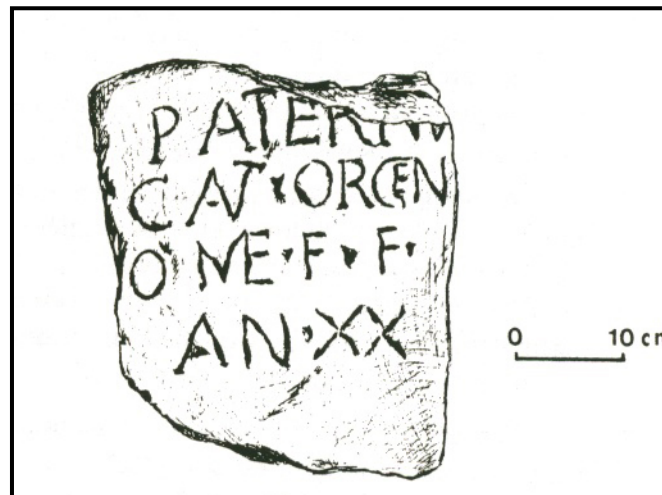 PATERNV
CAT·ORCEN
O NE·F·F·
AN·XX
0 10 cm